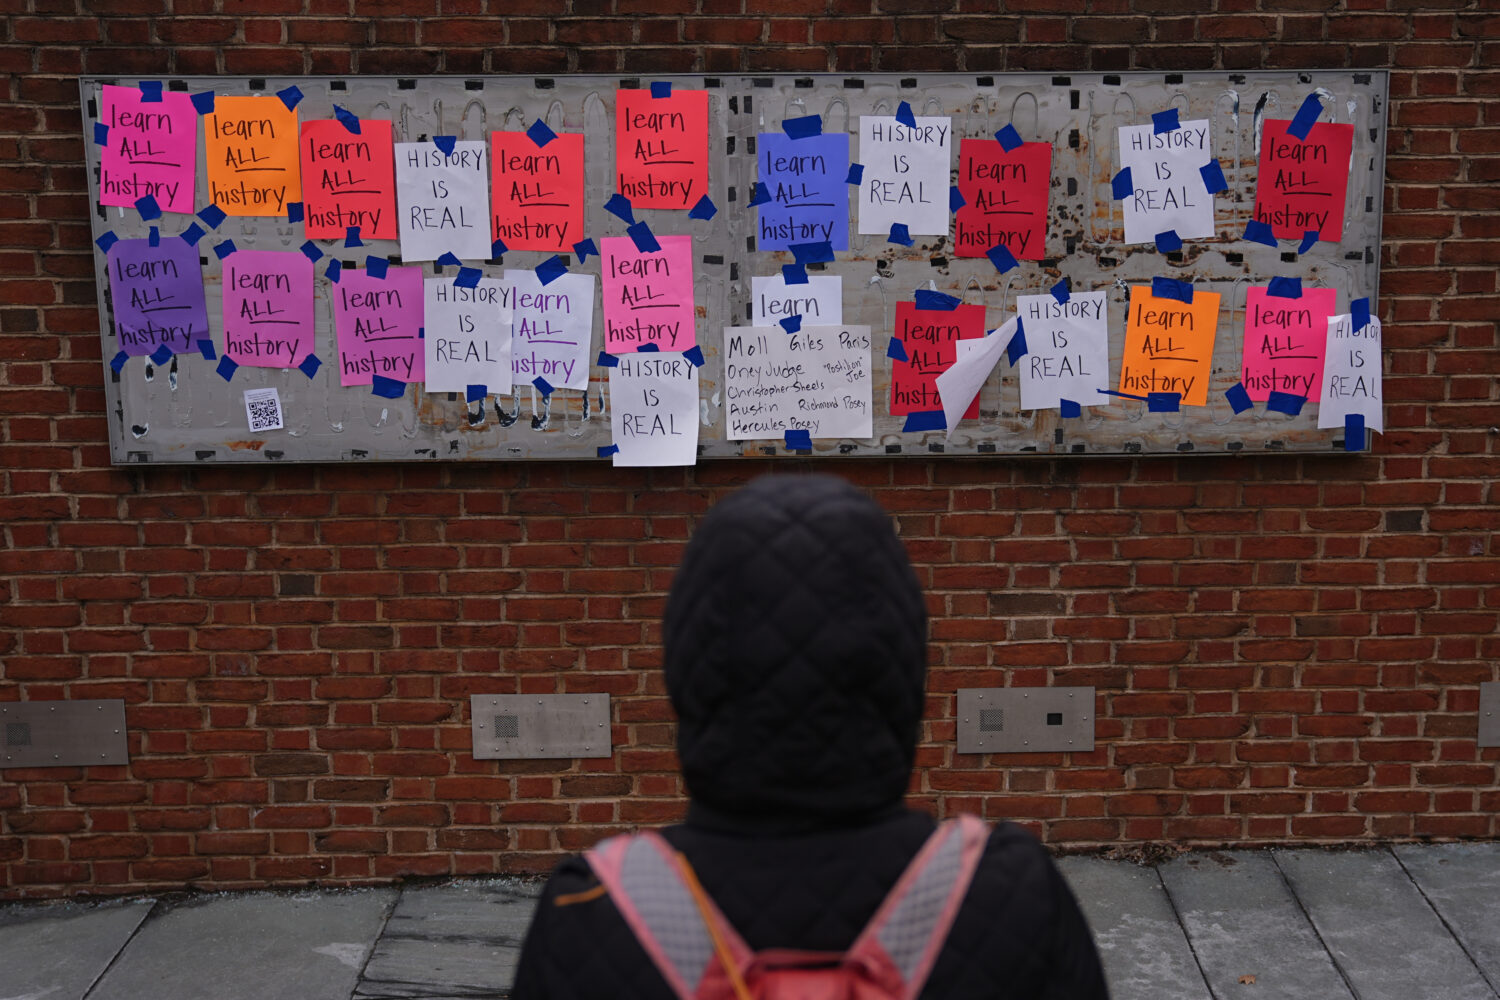 learn
ALL
history
learn
ALL
history
learn
ALL
history
HISTORY
IS
REAL
learn
ALL
history
learn
ALL
history
learn
ALL
history
HISTORY
IS
REAL
learn
ALL
history
HISTORY
IS
REAL
learn
ALL
history
learn
ALL
history
learn
ALL
history
learn
ALL
history
HISTORY
IS
REAL
learn
ALL
istory
learn
ALL
history
HISTORY
IS
REAL
learn
Moll Giles Paris
Oney Judge "Postilion"
Joe
Christopher Sheels
Austin Richmond Posey
Hercules Posey
learn
ALL
hist
HISTORY
IS
REAL
learn
ALL
history
learn
ALL
history
HISTO
IS
REAL